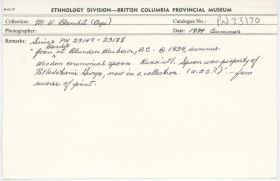 ETHNOLOGY DIVISION—BRITISH COLUMBIA PROVINCIAL MUSEUM
Collection: M.W. Blanchet (Capi) Catalogue No.: PN 23170
Photographer: Date: 1934 Summer
Remarks: Series PN 23147 - 23188
Blanchet
from at Blunden Harbour, B.C. @ 1934, summer
Wooden ceremonial spoon. Kwakiutl. Spoon was property of
now in a collection. (U.B.C.?)" - from
reverse of print.